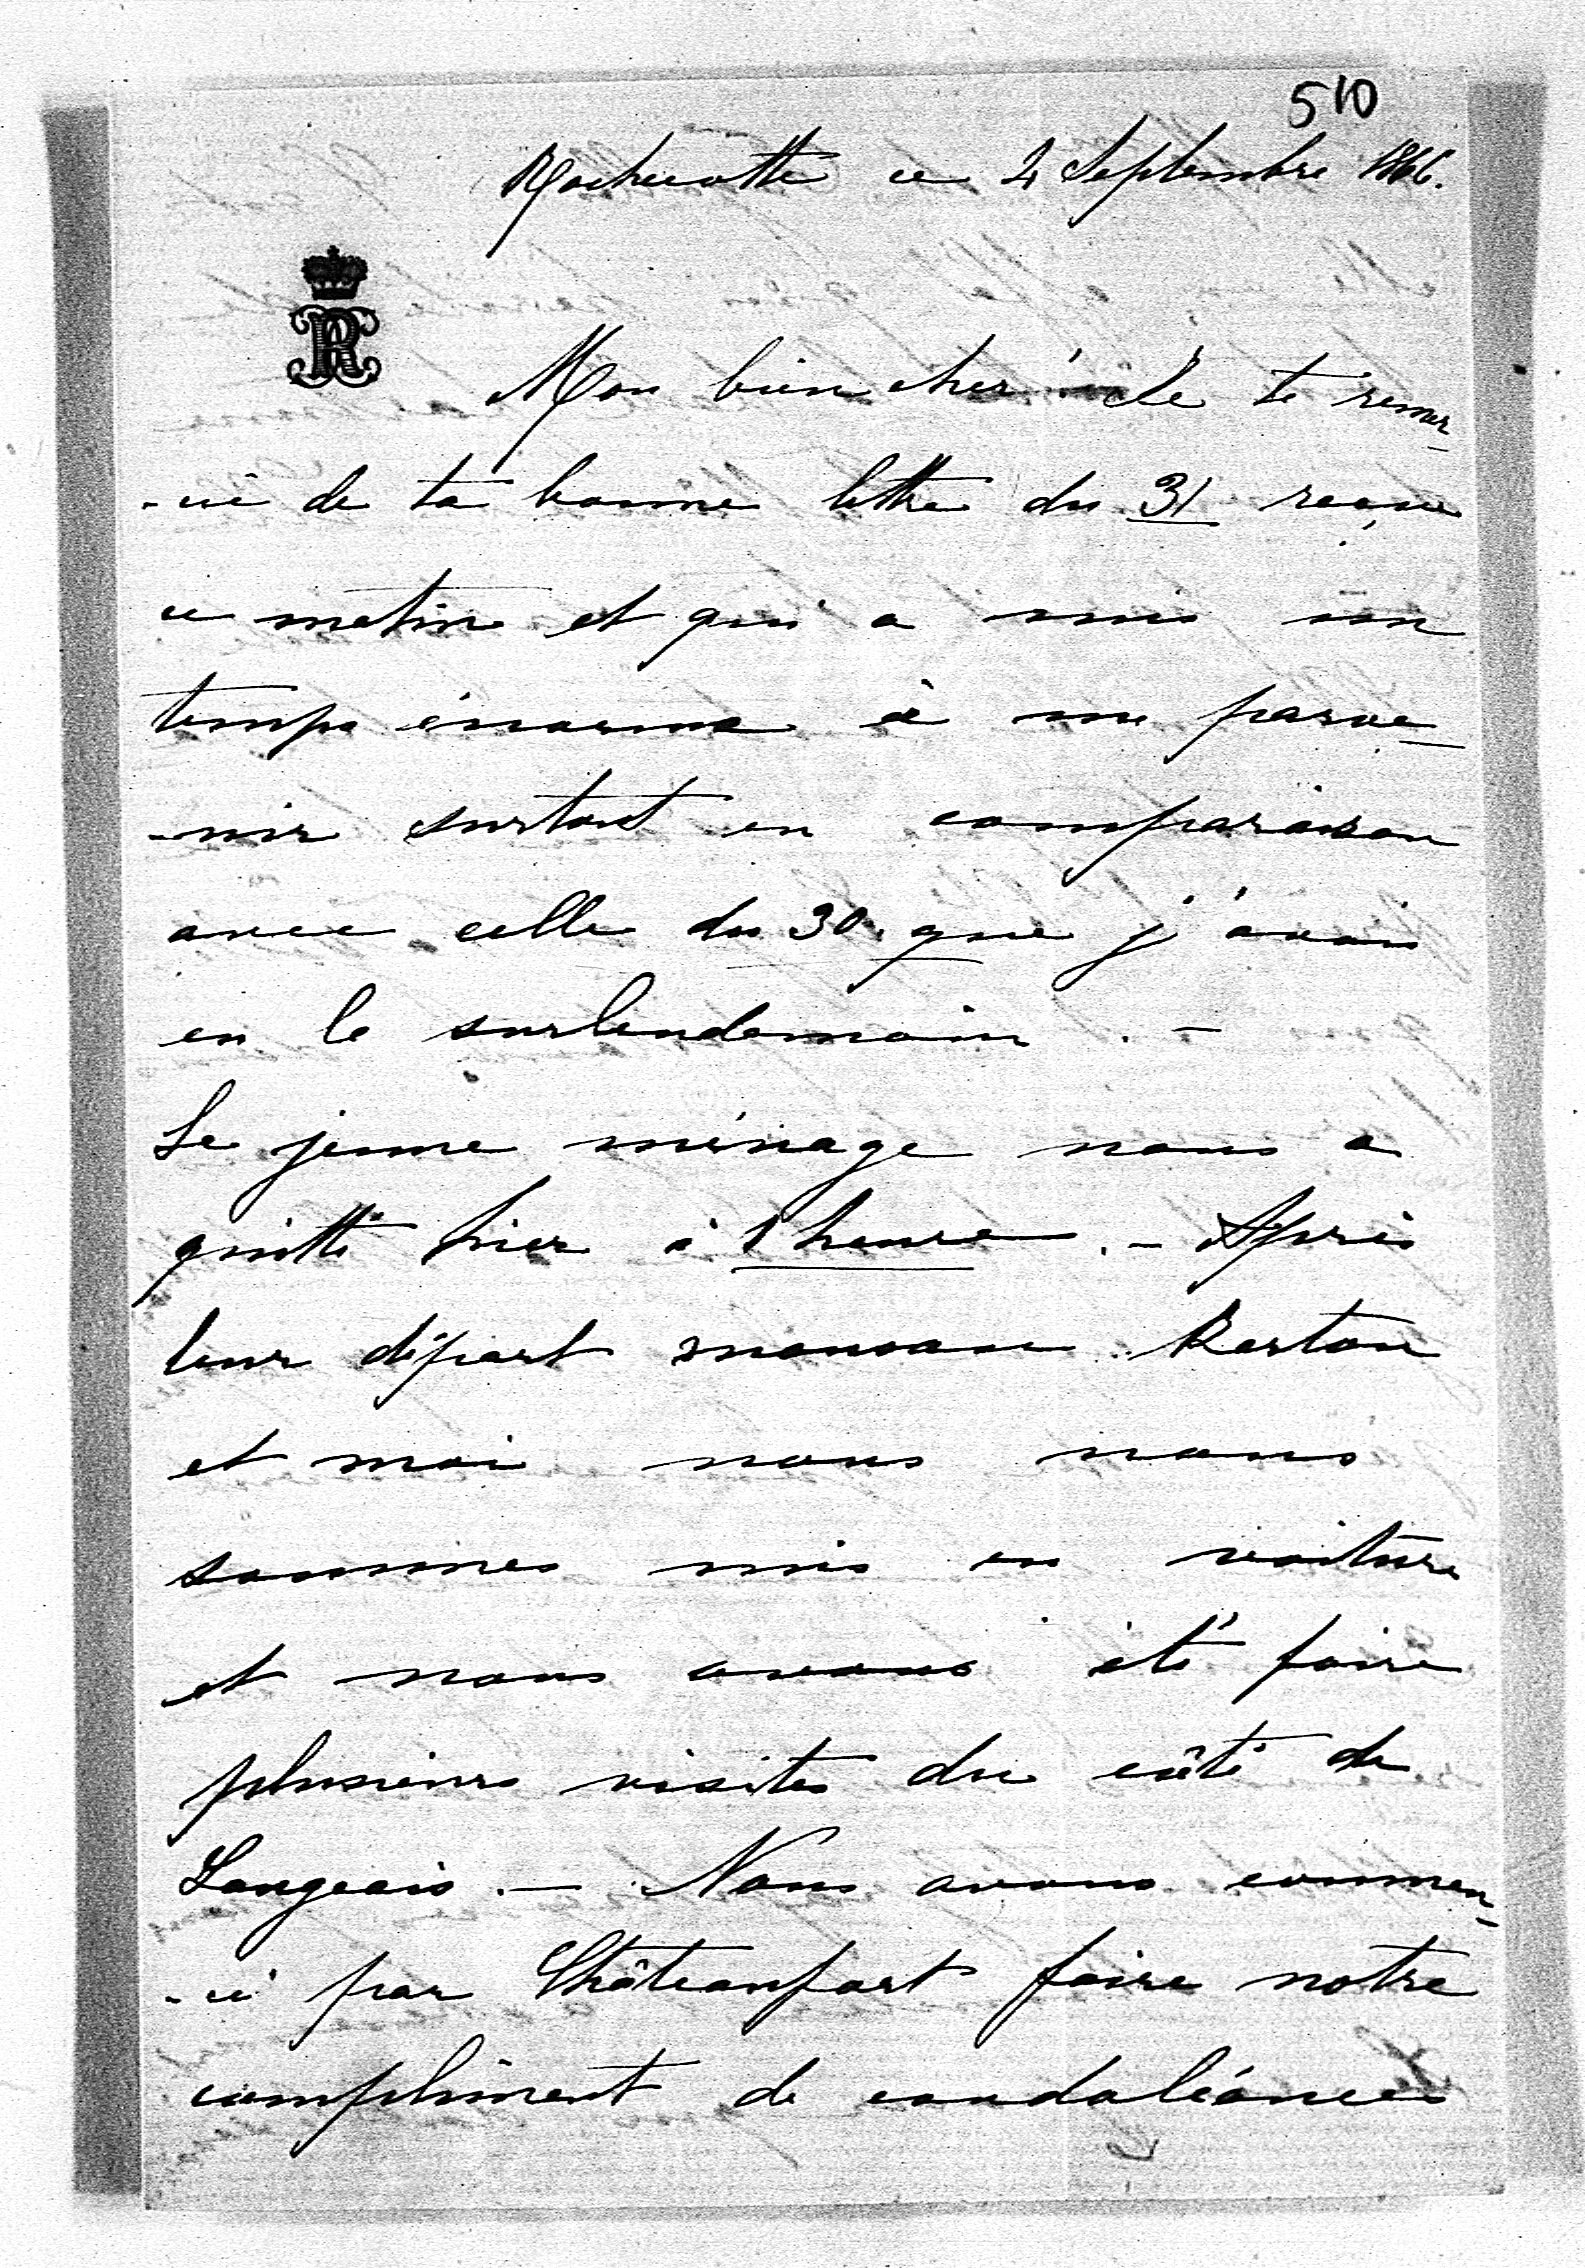 510
Rochecotte ce 4 Septembre 1866.
R
Mon bien cher! Je te remer-
-cie de ta bonne lettre du 31 reçue
ce matin et qui a mis un
temps énorme à me parve-
-nir surtout en comparaison
avec celle du 30. que j'avais
eu le surlendemain. -
Le jeune ménage nous a
quitté hier à 1 heure. - Après
leur départ maman Boston
et moi nous nous
sommes mis en voiture
et nous avons été faire
plusieurs visites du côté de
Langeais. - Nous avons commen-
-cé par Châteaufort faire notre
compliment de condoléances